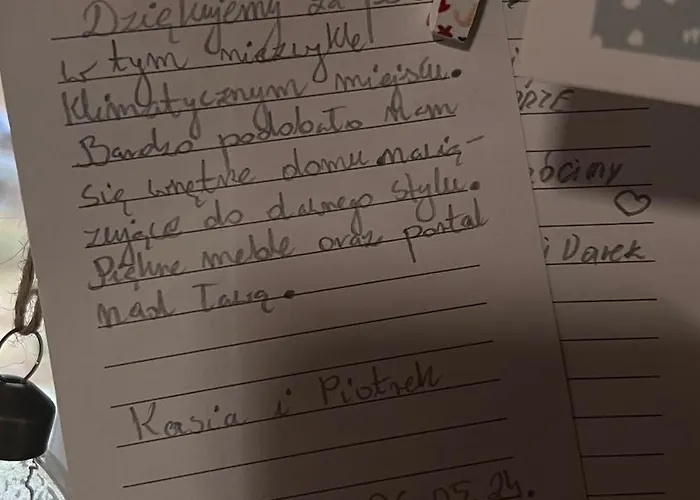 Dziękujemy za
w tym niezwykle
klimatycznym miejscu.
Bardzo podobało nam
się wnętrze domu nawią-
zujące do dawnego stylu.
Piękne meble oraz portal
nad Tanią.
Kasia i Piotrek
05.24.
i Darek